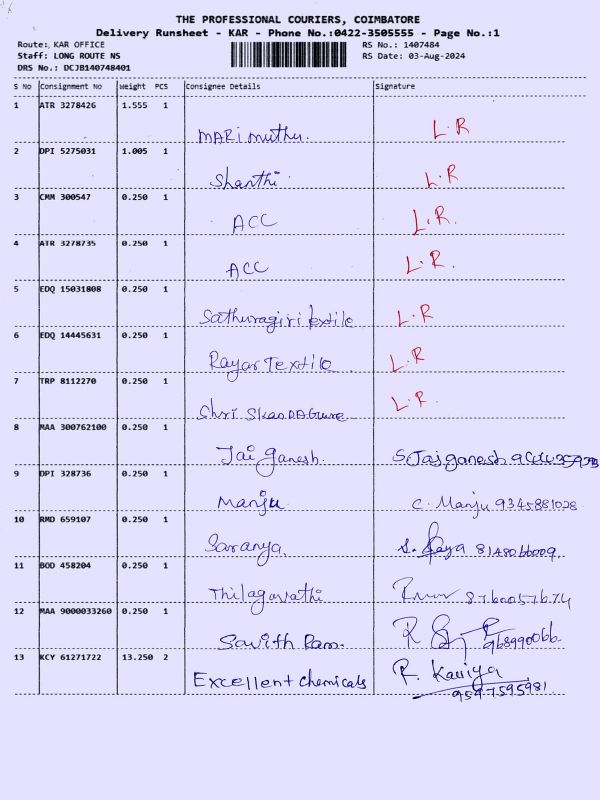 THE PROFESSIONAL COURIERS, COIMBATORE
Delivery Runsheet - KAR - Phone No.:0422-3505555 - Page No.:1
Route: KAR OFFICE RS No.: 1407484
Staff: LONG ROUTE NS RS Date: 03-Aug-2024
DRS No.: DCJB140748401
S No Consignment No Weight PCS Consignee Details Signature
1 ATR 3278426 1.555 1
MARimuthu. L.R
2 DPI 5275031 1.005 1
Shanthi. L.R
3 CMM 300547 0.250 1
ACC L.R.
4 ATR 3278735 0.250 1
ACC L.R.
5 EDQ 15031808 0.250 1
Sathuragiri textile L.R
6 EDQ 14445631 0.250 1
Rayar Textile L.R
7 TRP 8112270 0.250 1
Shri L.R.
8 MAA 300762100 0.250 1
Jai Ganesh. S. Jaiganesh
9 DPI 328736 0.250 1
Manju. C. Manju 9345881028
10 RMD 659107 0.250 1
Saranya. 8148066009
11 BOD 458204 0.250 1
Thilagavathi
12 MAA 9000033260 0.250 1
Savith Ram.
13 KCY 61271722 13.250 2
Excellent chemicals R. Kaviya
9597595981